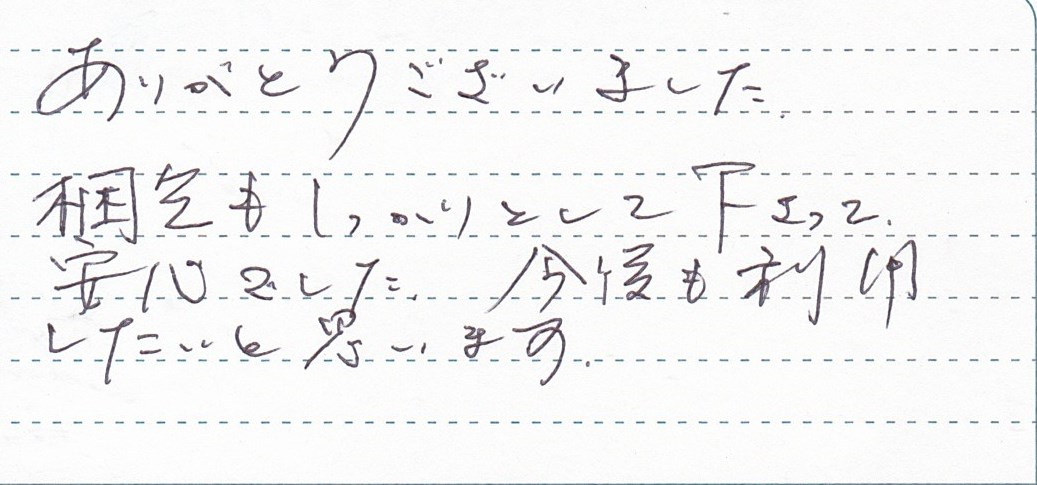 ありがとうございました.
梱包もしっかりとして下さって.
安心でした. 今後も利用
したいと思います.